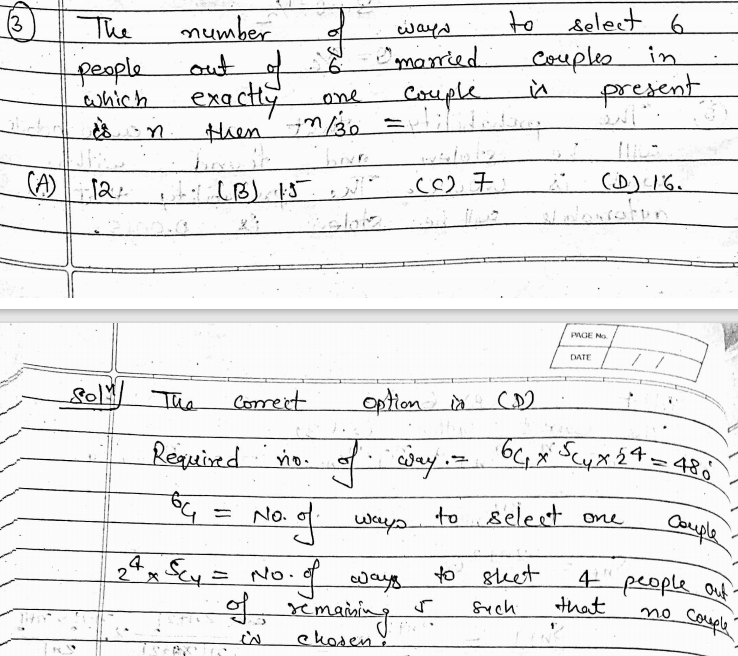 3 The number of ways to select 6
people out of 6 married couples in
which exactly one couple is present
is n then n/30 =
(A) 12 (B) 15 (C) 7 (D) 16.
PAGE No.
DATE / /
Solⁿ The correct option is (D)
Required no. of way. = ⁶C₁ x ⁵C₄ x 2⁴ = 480
⁶C₁ = No. of ways to select one couple
2⁴ x ⁵C₄ = No. of ways to slect 4 people out
of remaining 5 such that no couple
is chosen.